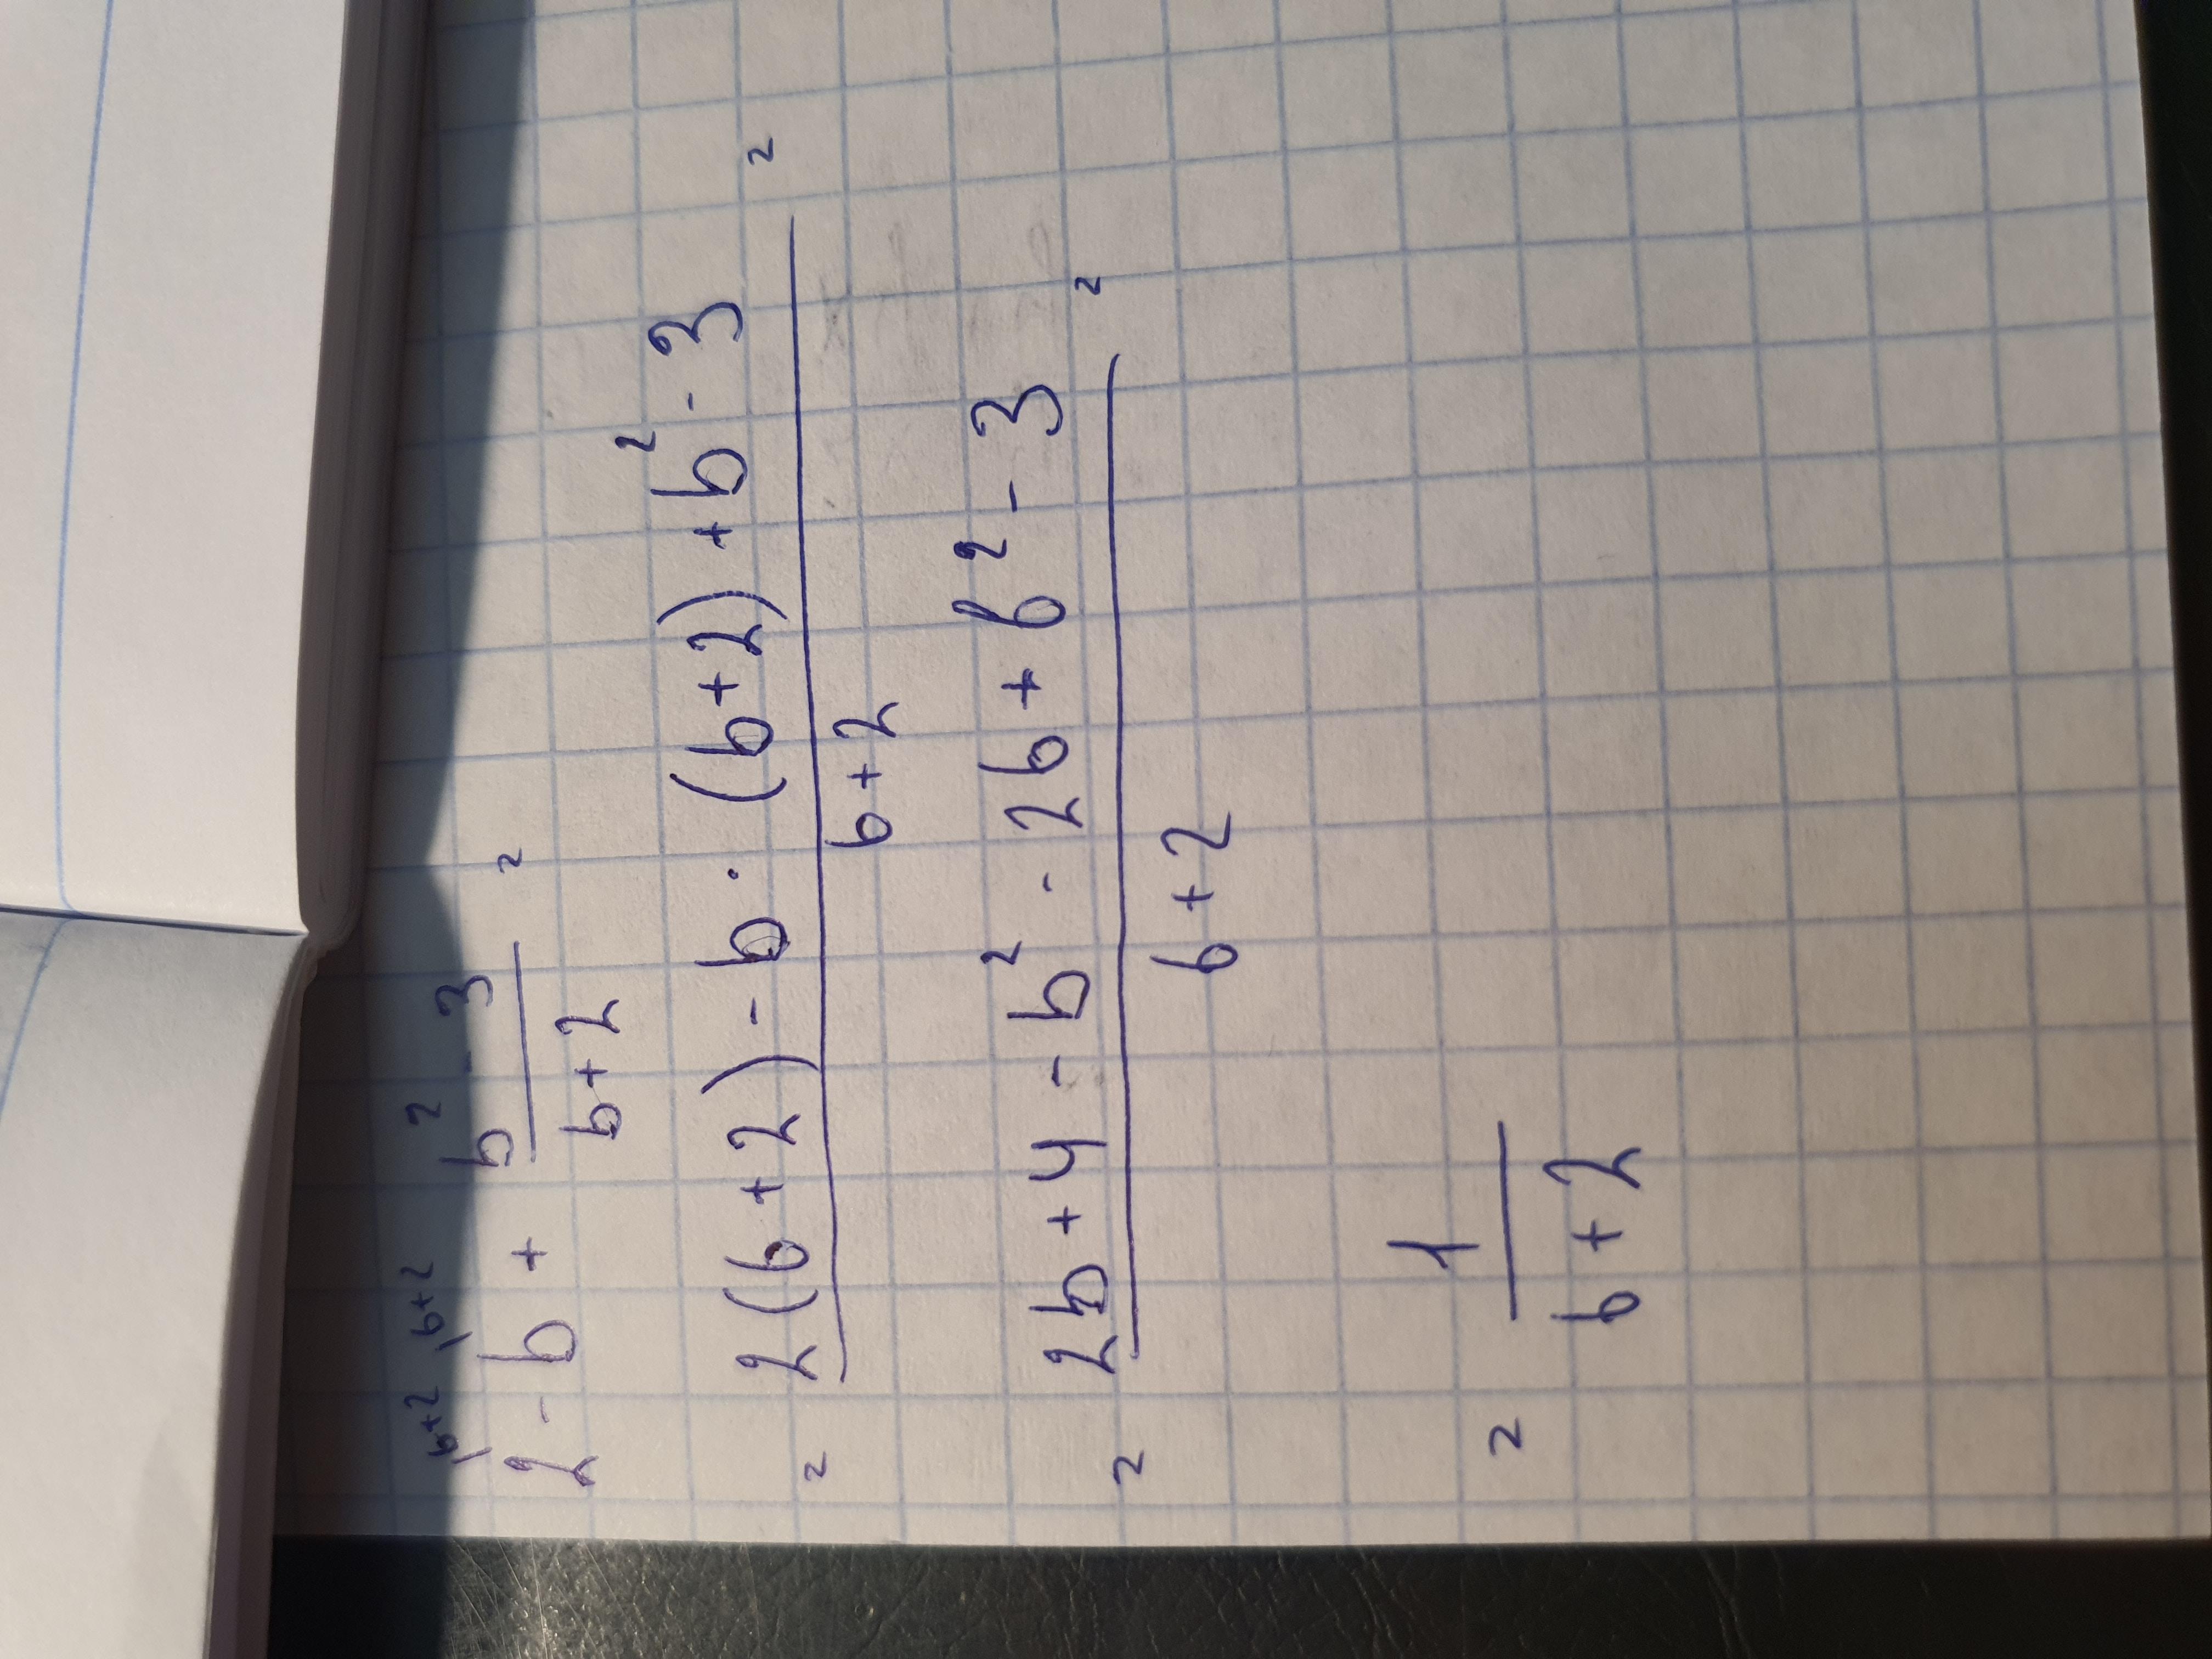 2^{\b+2} - b^{\b+2} + \frac{b^2 - 3}{b+2} =
= \frac{2(b+2) - b \cdot (b+2) + b^2 - 3}{b+2} =
= \frac{2b + 4 - b^2 - 2b + b^2 - 3}{b+2} =
= \frac{1}{b+2}